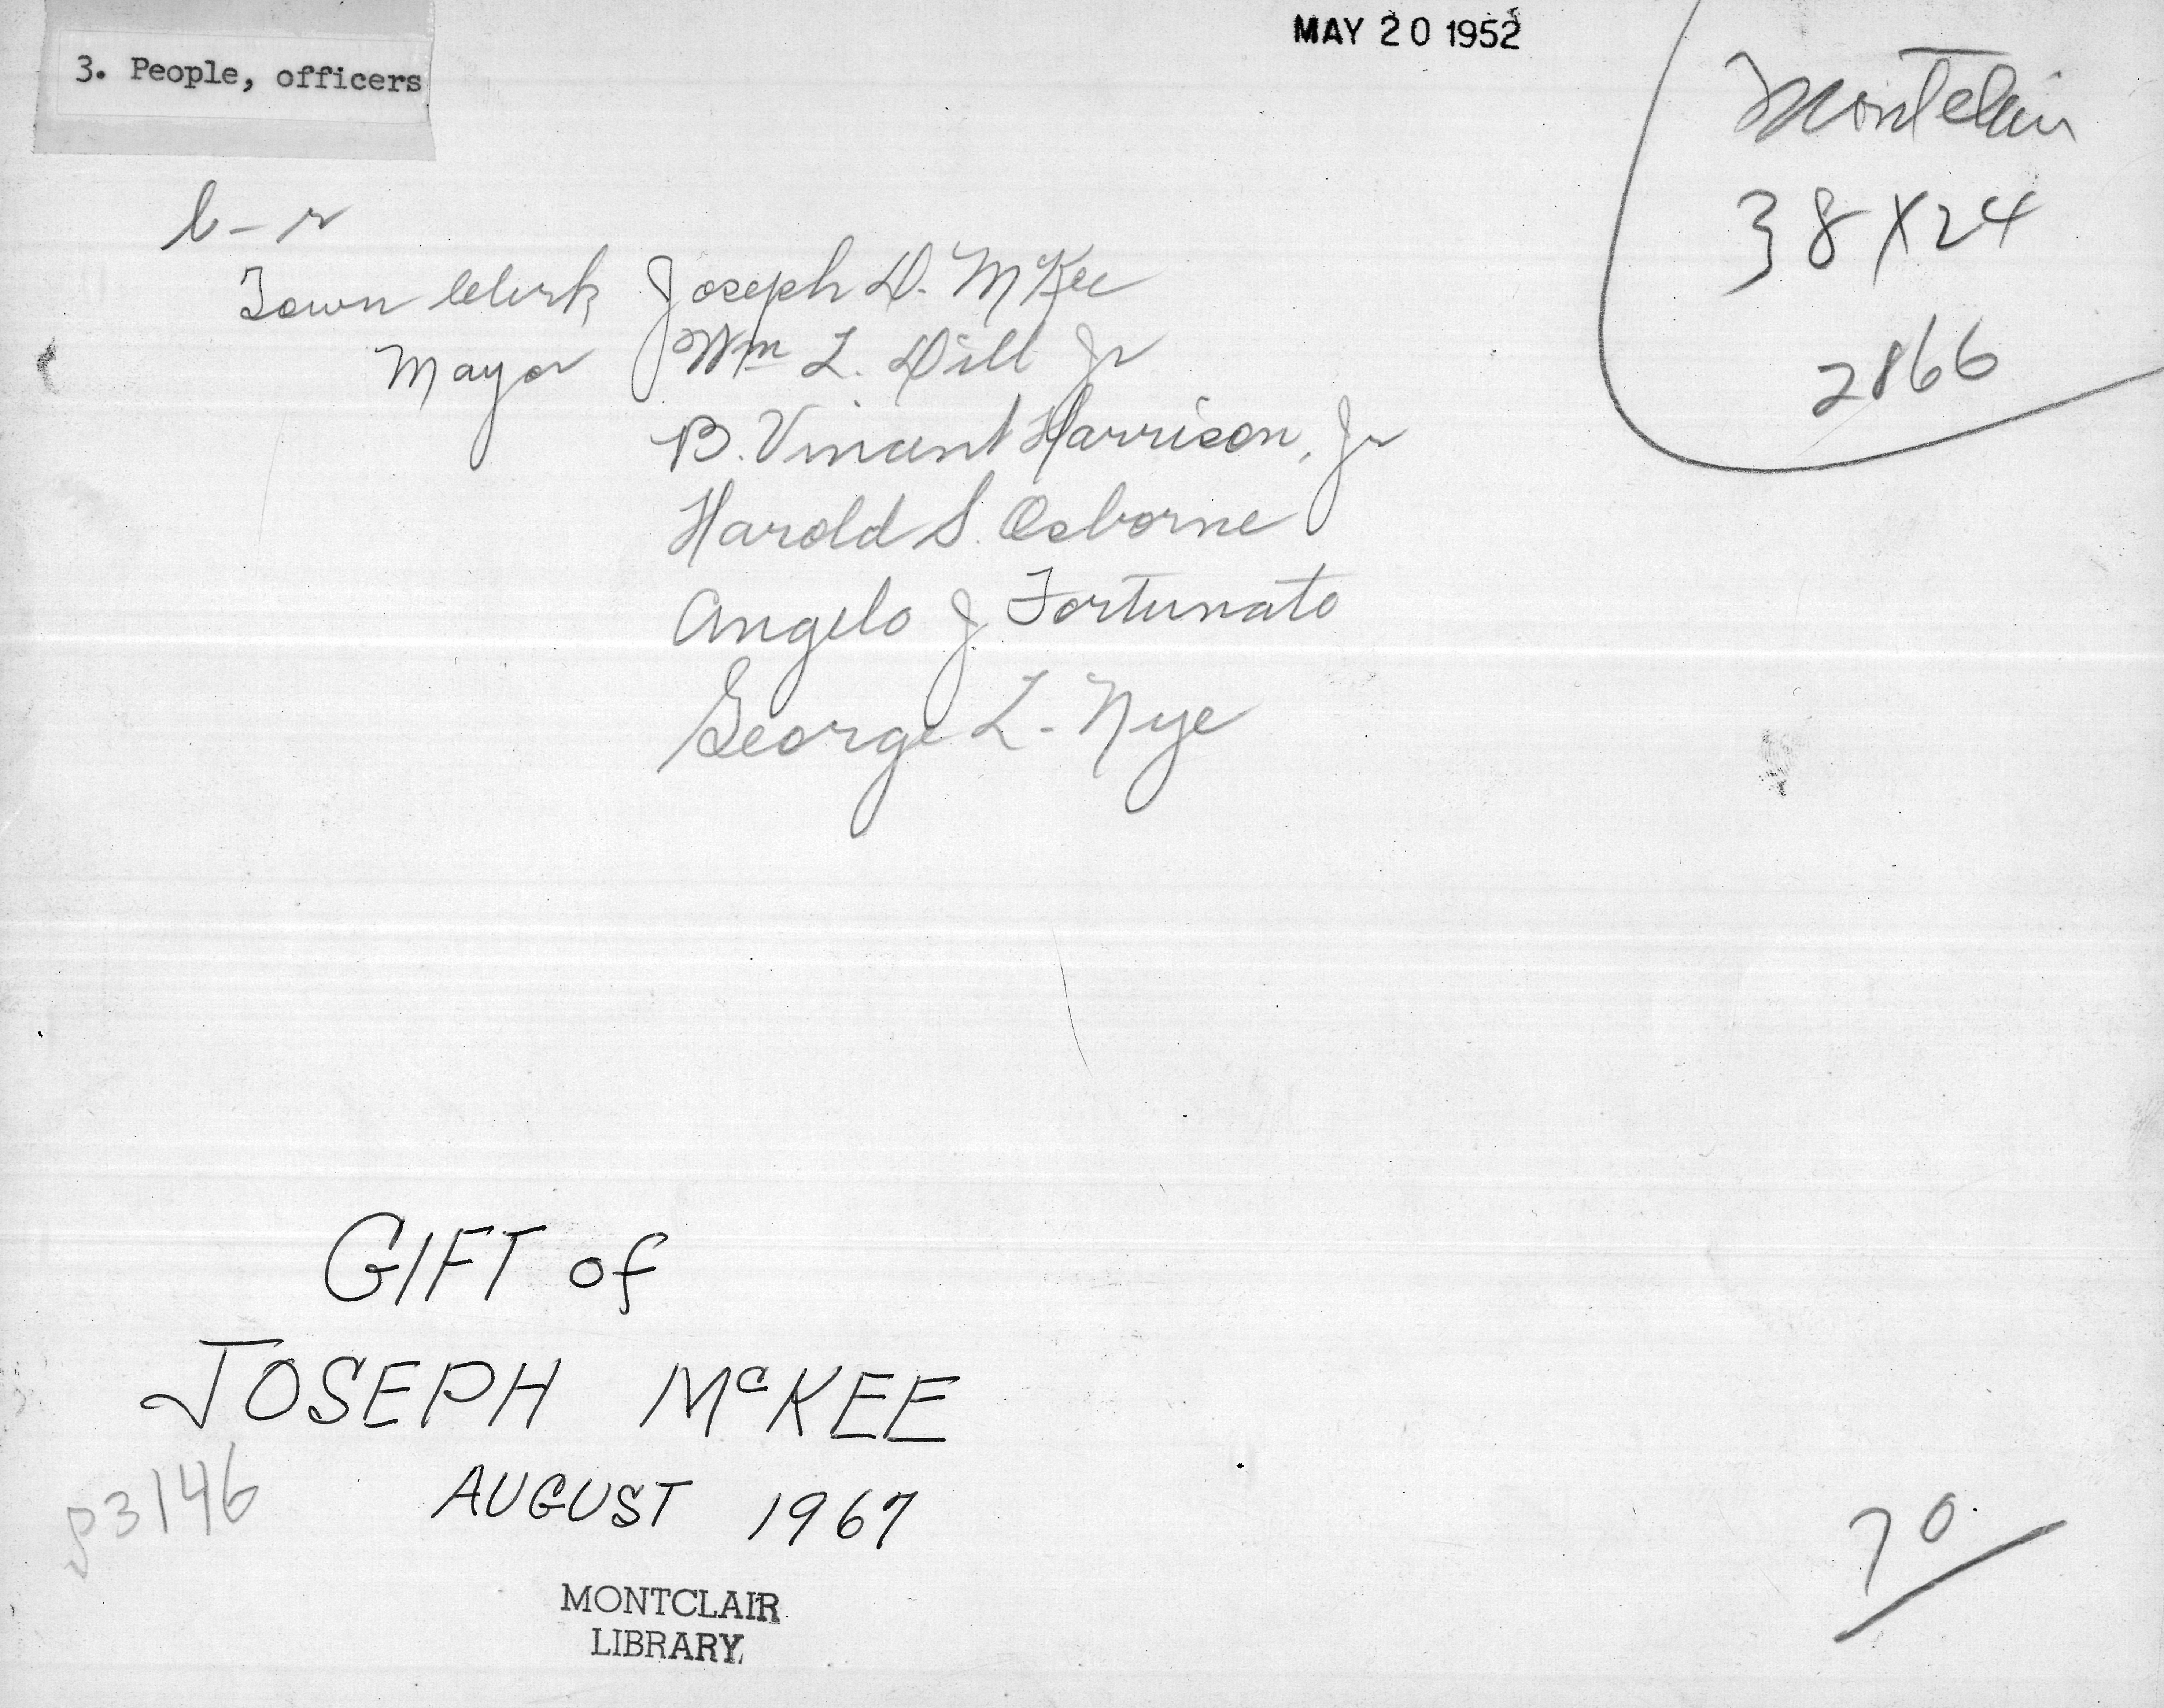 3. People, officers
MAY 20 1952
Montclair
38 X 24
2866
l - r
Town Clerk Joseph D. McKee
Mayor Wm L. Dill Jr
B. Vincent Harrison, Jr
Harold S. Osborne
Angelo J. Fortunato
George L. Nye
GIFT of
JOSEPH McKEE
AUGUST 1967
3146
MONTCLAIR
LIBRARY
70